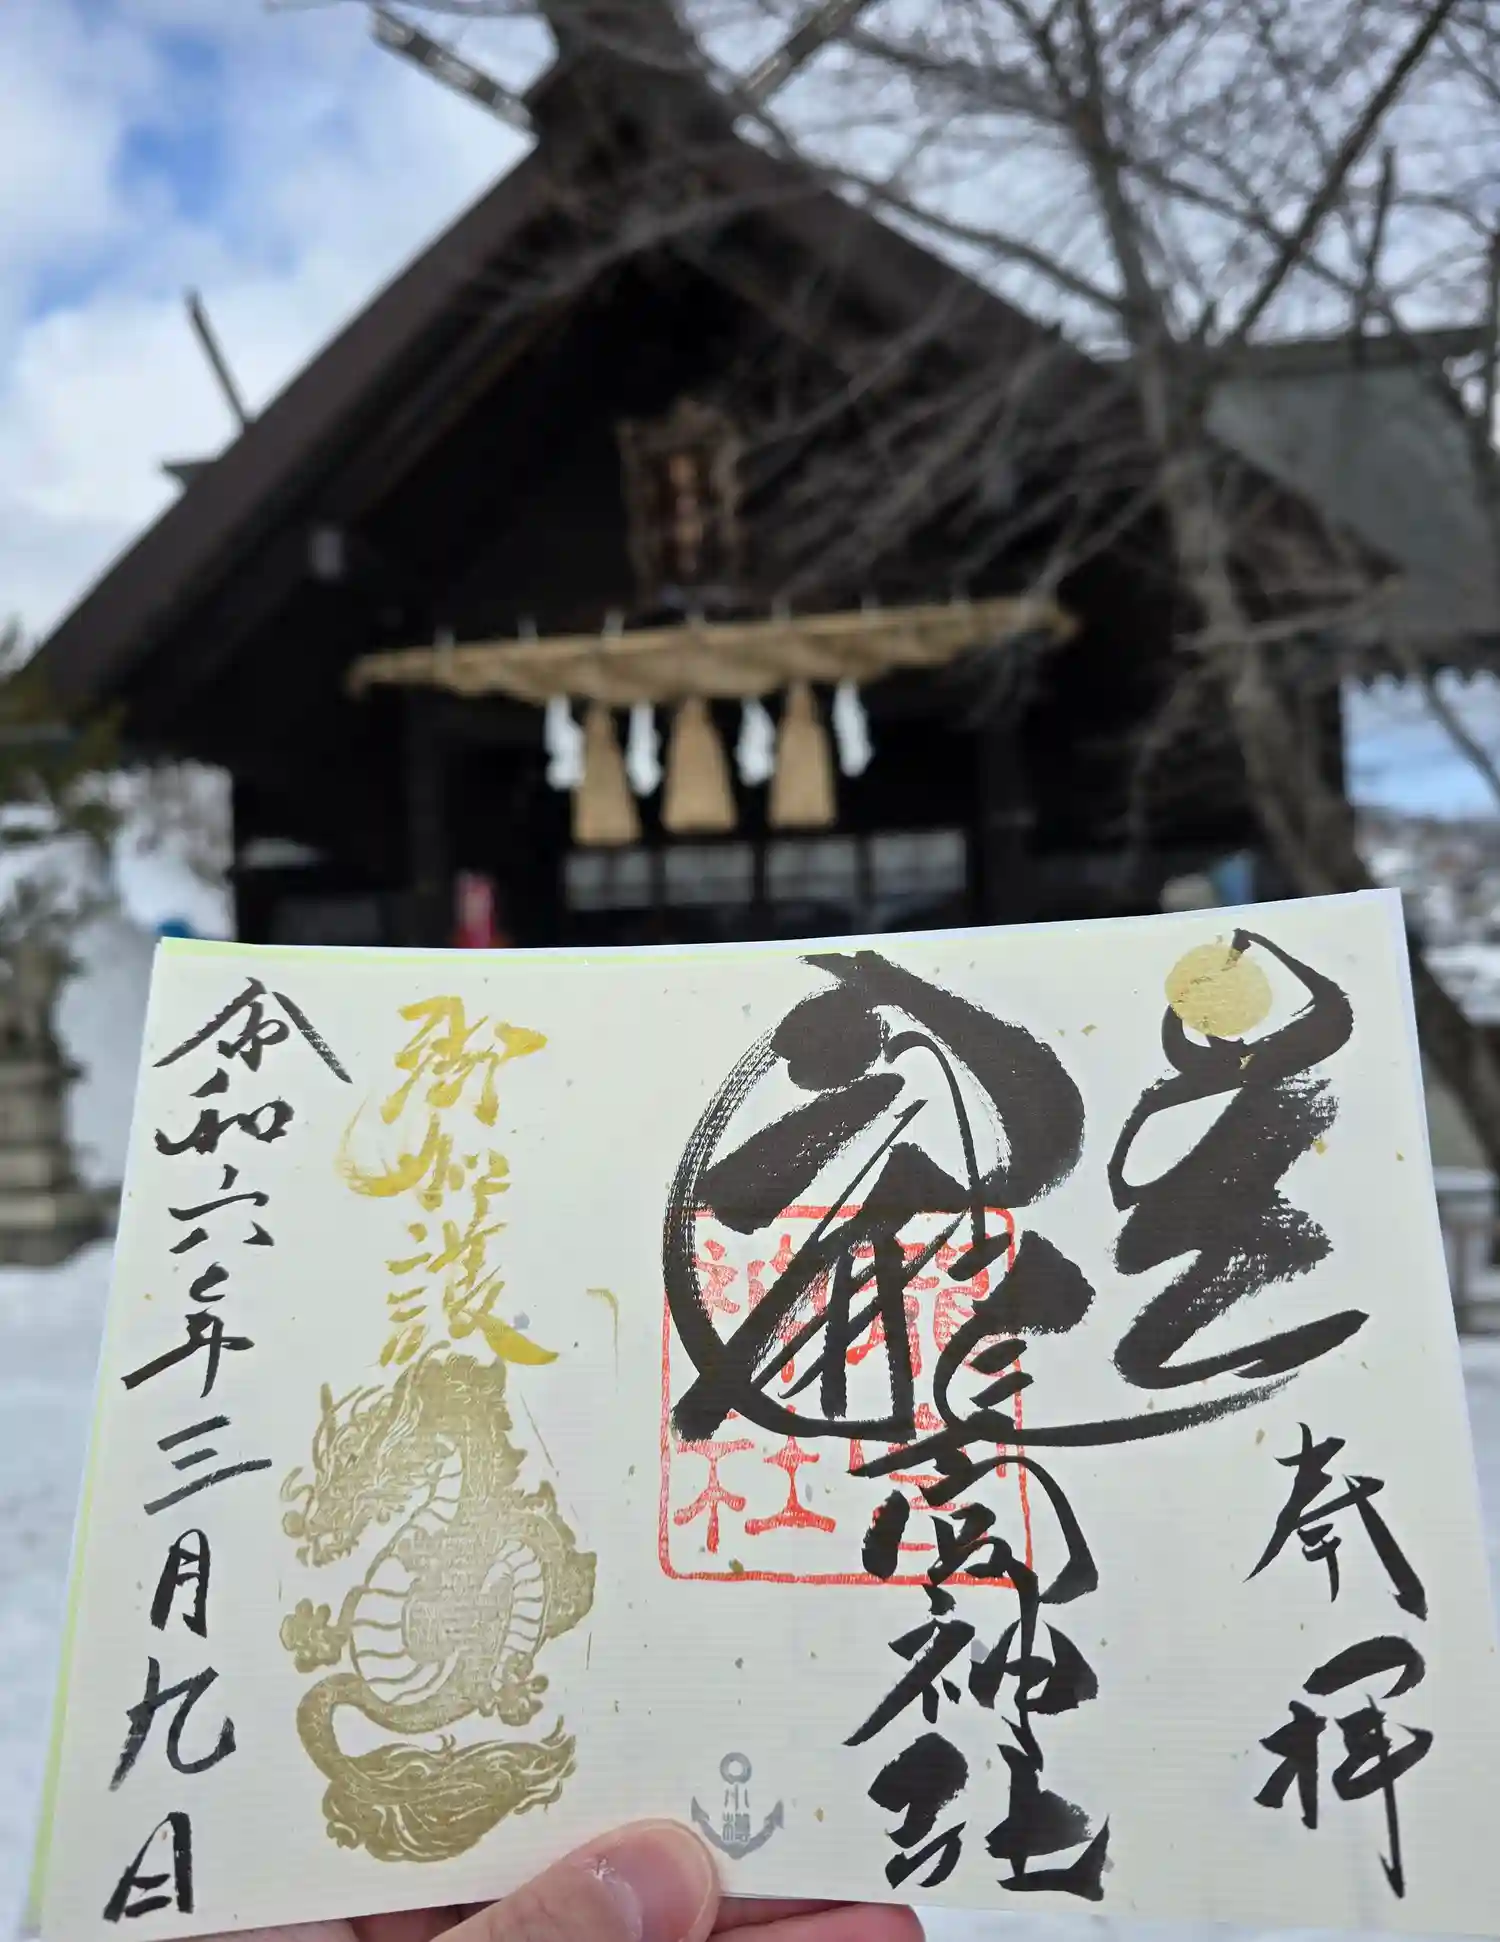 奉拝
龍宮神社
龍宮
神社
御加護
令和六年三月九日
小樽